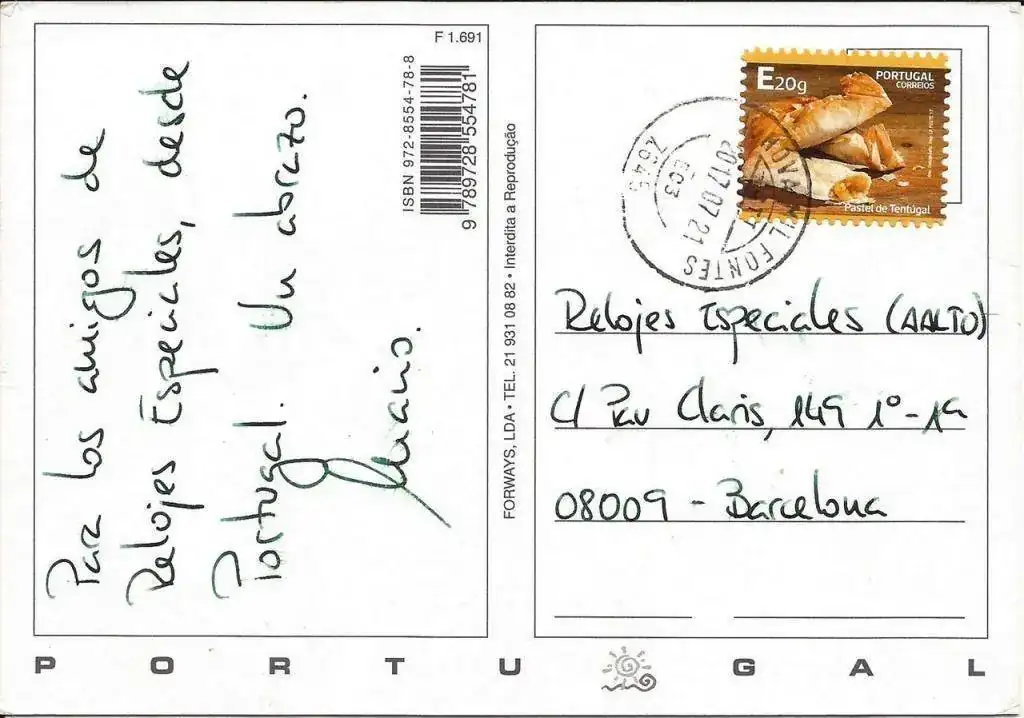 F 1.691
Para los amigos de
Relojes Especiales, desde
Portugal. Un abrazo.
ISBN 972-8554-78-8
9 789728 554781
FORWAYS, LDA • TEL. 21 931 08 82 • Interdita a Reprodução
E20g
PORTUGAL
CORREIOS
Pastel de Tentúgal
MIL FONTES
2017.07.21
EC3
7645
Relojes Especiales (AALTO)
C/ Pau Claris, 149 1º-1ª
08009 - Barcelona
PORTUGAL